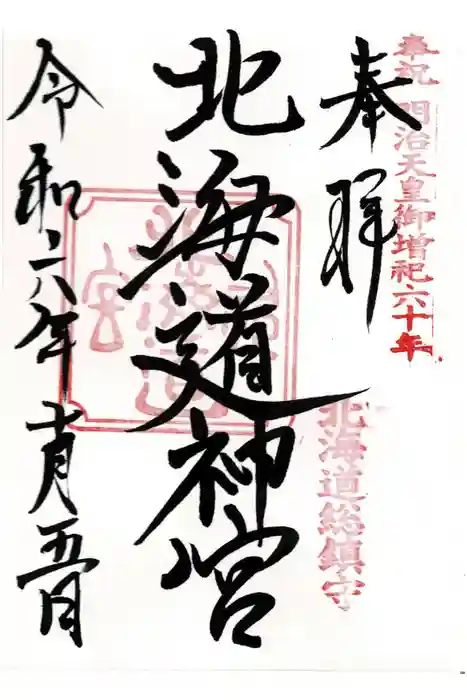 奉祝 明治天皇御増祀六十年
奉拝
北海道総鎮守
北海道神宮
令和六年十月五日